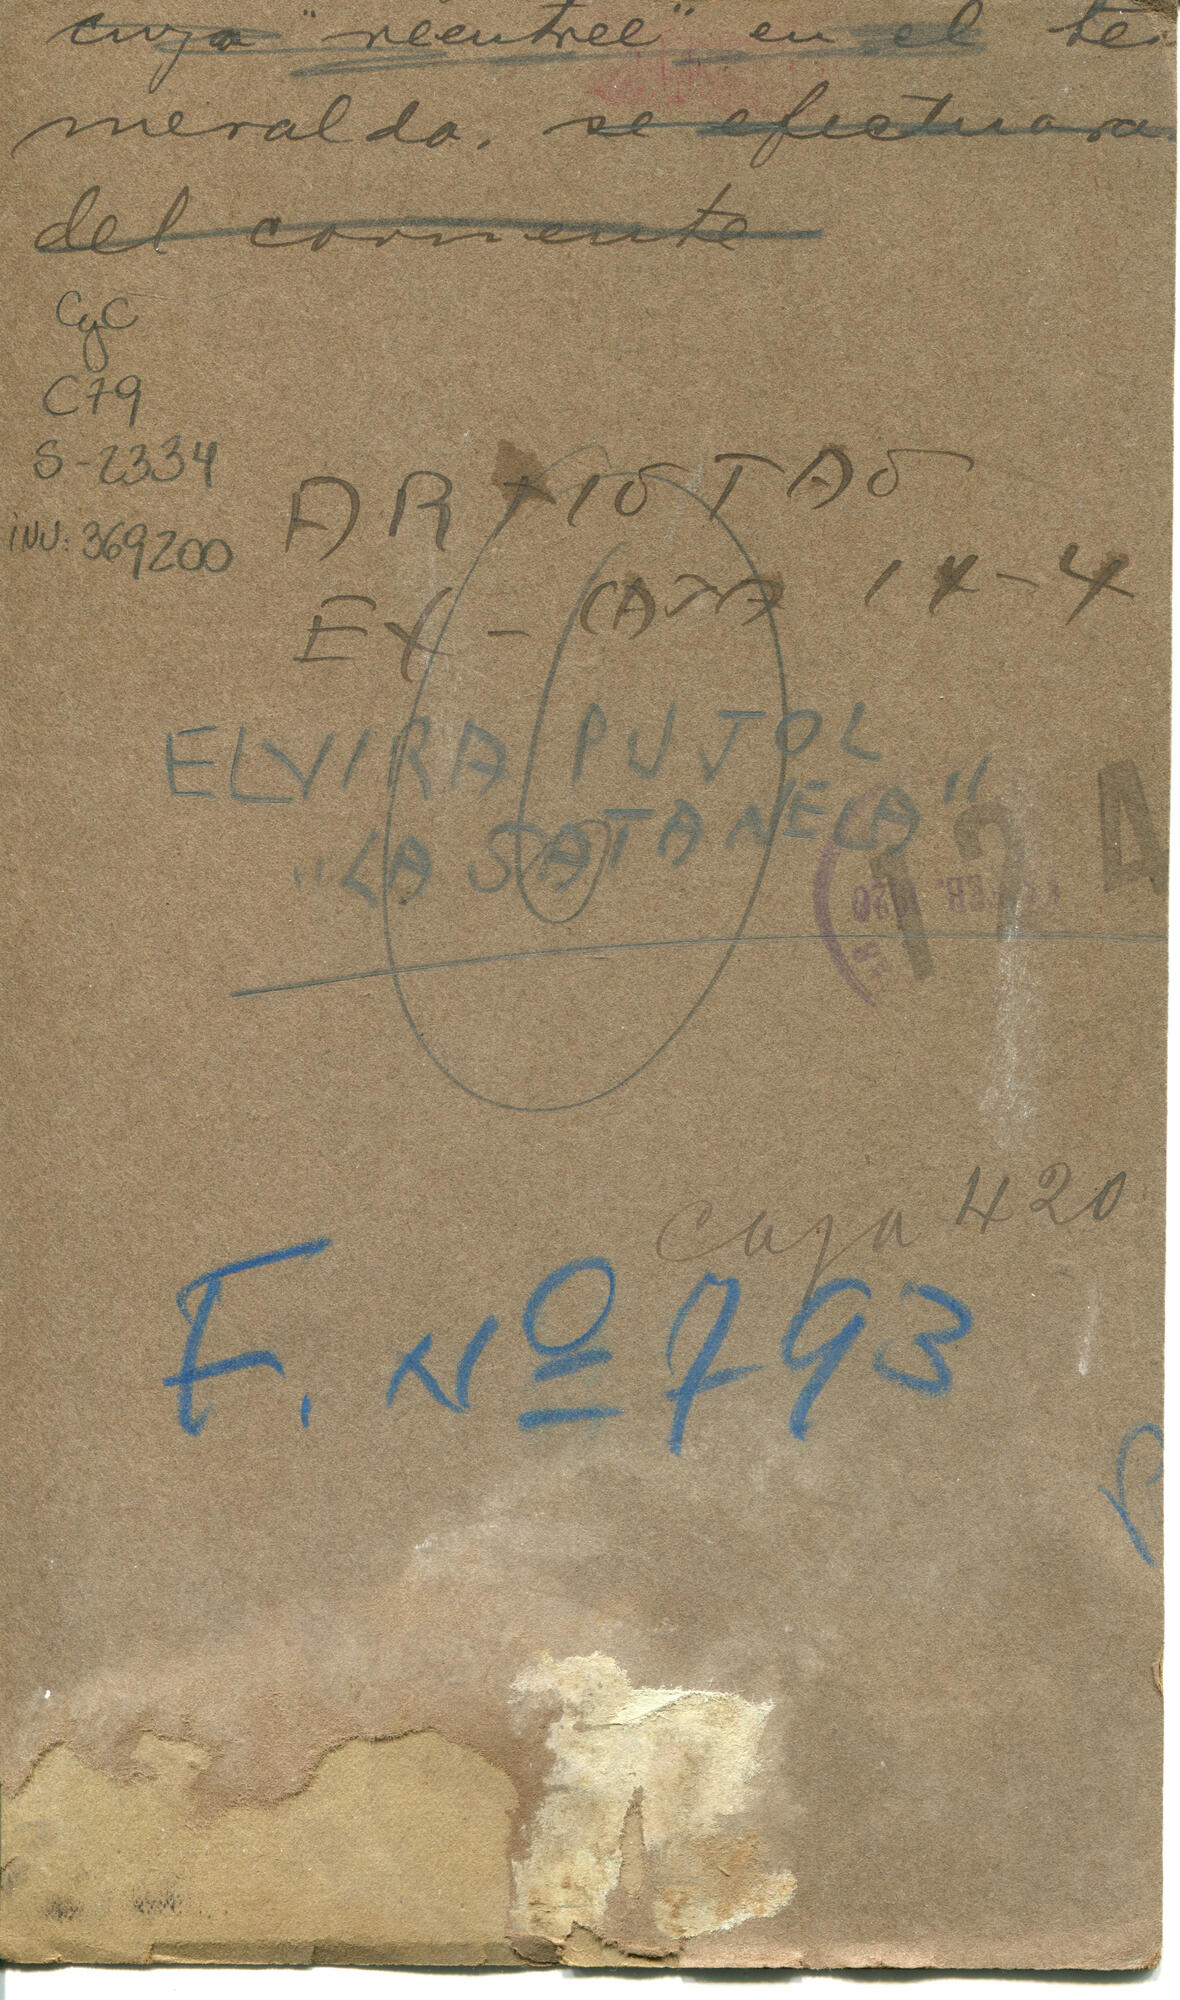 cuya "reentree" en el te
meralda, se efectuara
del corriente
CyC
C79
S-2334
INV: 369200
ARTISTAS
EX-CAJA 14-4
ELVIRA PUJOL
"LA SATANELA"
124
caja 420
F. Nº 793